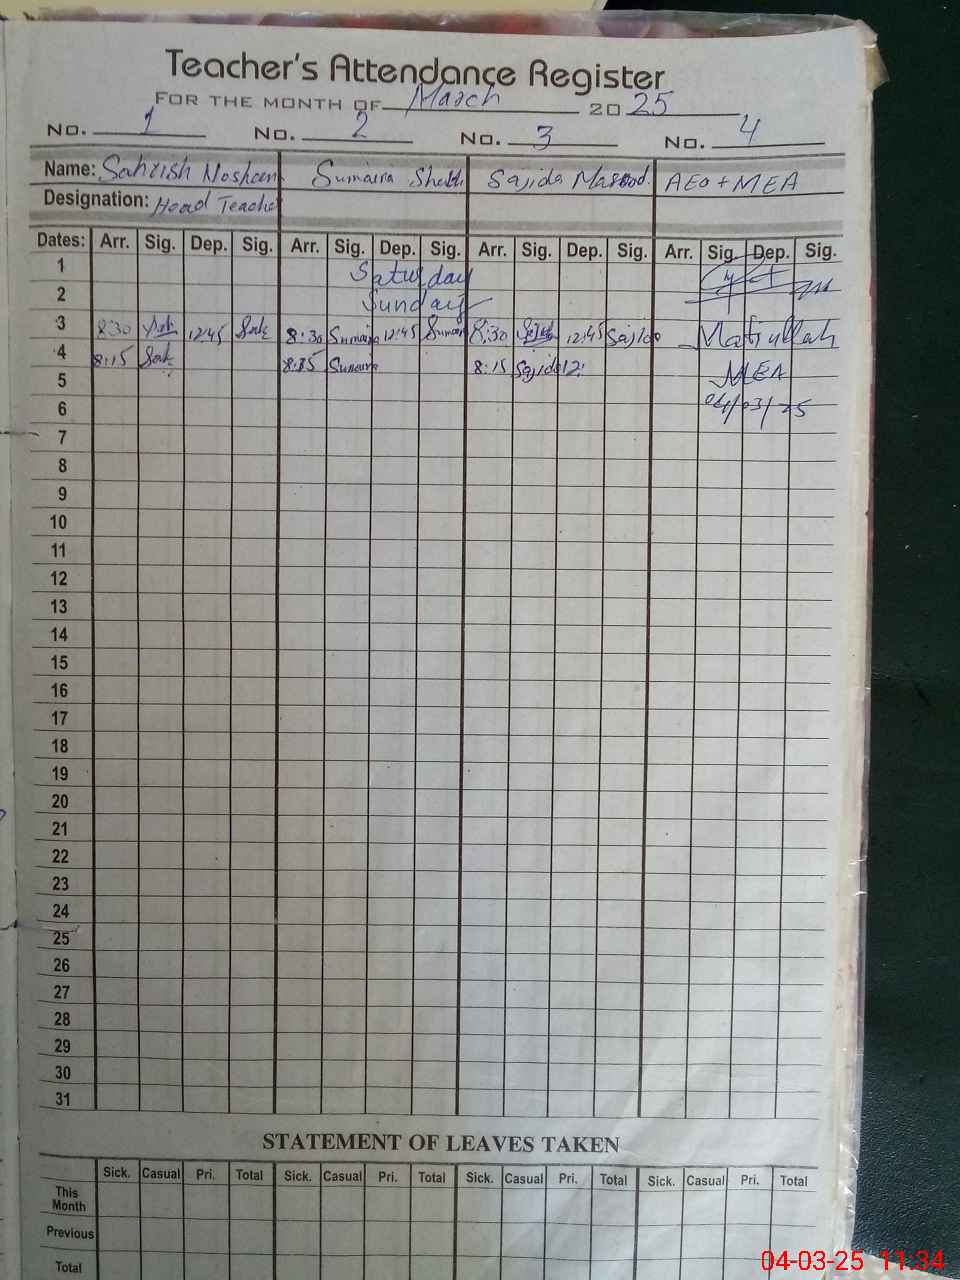 Teacher's Attendance Register
FOR THE MONTH OF March 2025
No. 1 No. 2 No. 3 No. 4
Name: Sahrish Nosheen Sumaira Sheikh Sajida Masood. AEO + MEA
Designation: Head Teacher
Dates: Arr. Sig. Dep. Sig. Arr. Sig. Dep. Sig. Arr. Sig. Dep. Sig. Arr. Sig. Dep. Sig.
1 Saturday
2 Sunday
3 8:30 12:45 8:30 Sumaira 12:45 Sumaira 8:30 Sajida 12:45 Sajida Matiullah
4 8:15 8:15 Sumaira 8:15 Sajida 12:
5 MEA
6 04/03/25
7
8
9
10
11
12
13
14
15
16
17
18
19
20
21
22
23
24
25
26
27
28
29
30
31
STATEMENT OF LEAVES TAKEN
Sick. Casual Pri. Total Sick. Casual Pri. Total Sick. Casual Pri. Total Sick. Casual Pri. Total
This Month
Previous
Total
04-03-25 11:34